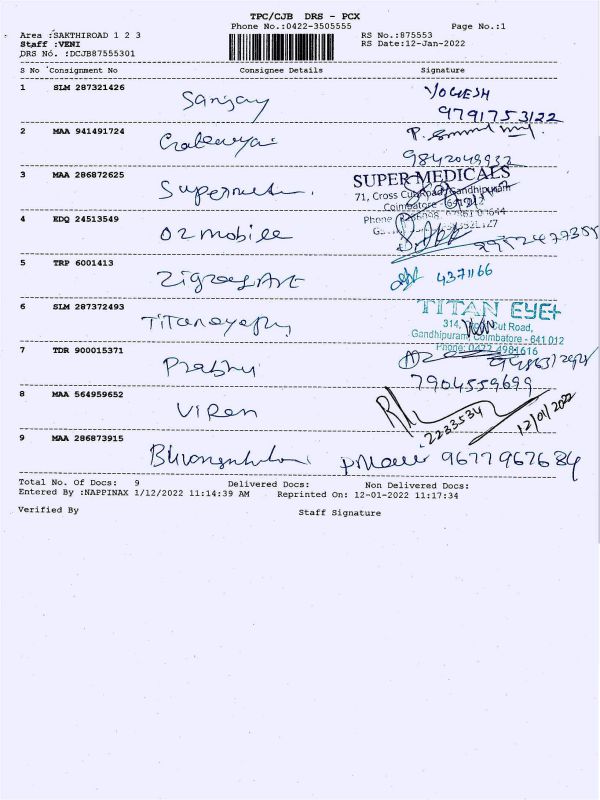 TPC/CJB DRS - PCX
Phone No.:0422-3505555 Page No.:1
Area :SAKTHIROAD 1 2 3 RS No.:875553
Staff :VENI RS Date:12-Jan-2022
DRS No. :DCJB87555301
S No Consignment No Consignee Details Signature
1 SLM 287321426 Sanjay YOGESH
9791753122
2 MAA 941491724
9842049932
3 MAA 286872625 SUPER MEDICALS
71, Cross Cut Road, Gandhipuram
Coimbatore - 641012
Phone
4 EDQ 24513549 O2 mobile
5 TRP 6001413 4371166
6 SLM 287372493 Titaneyeplus TITAN EYE+
314, Cut Road,
Gandhipuram, Coimbatore - 641 012
Phone: 0422 4981616
7 TDR 900015371 Prabhu
7904559699
8 MAA 564959652 Viren 2233534 12/01/2022
9 MAA 286873915 9677967684
Total No. Of Docs: 9 Delivered Docs: Non Delivered Docs:
Entered By :NAPPINAX 1/12/2022 11:14:39 AM Reprinted On: 12-01-2022 11:17:34
Verified By Staff Signature